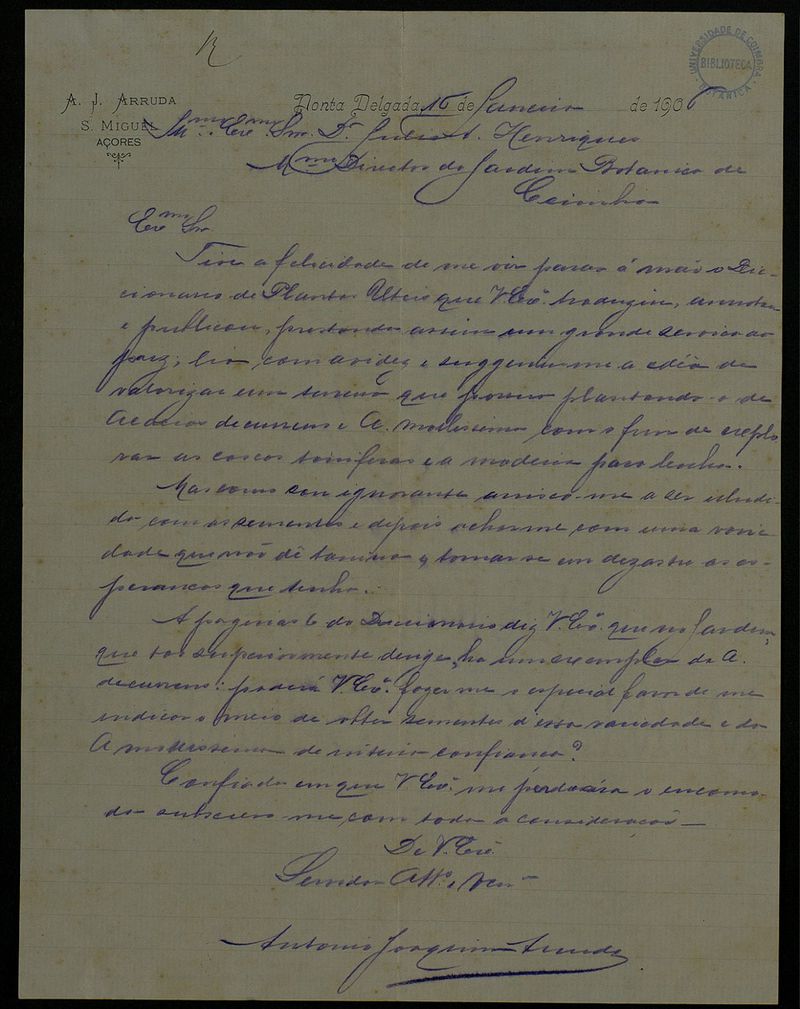 R
UNIVERSIDADE DE COIMBRA
BIBLIOTECA
BOTANICA
A. J. ARRUDA
S. MIGUEL
AÇORES
Ponta Delgada, 16 de Janeiro de 1906
Illmo. e Exmo. Snr. Dr. Julio A. Henriques
Mmo. Director do Jardim Botanico de
Coimbra
Exmo Snr.
Tive a felicidade de me vir parar á mão o Dic-
cionario de Plantas Uteis que V. Exª. traduziu, annotou
e publicou, prestando assim um grande serviço ao
paiz; li-o com avidez e suggeriu-me a idéa de
valorizar um terreno que possuo plantando-o de
Acacias decurrens e A. mollissima com o fim de explo-
rar as cascas taniferas e a madeira para lenha.
Mas como sou ignorante arrisco-me a ser illudi-
do com as sementes e depois achar-me com uma varie
dade que não dê tanino e tornar-se um dezastre as es-
peranças que tenho.
A paginas 6 do Diccionario diz V. Exª. que no Jardim,
que tão superiormente dirige, ha um exemplar da A.
decurrens: poderá V. Exª. fazer-me o especial favor de me
indicar o meio de obter sementes d'essa variedade e da
A mollissima de inteira confiança?
Confiado em que V Exª. me perdoará o encomo-
do subscrevo-me com toda a consideração
De V. Exª.
Servidor Attº. e Venor
Antonio Joaquim Arruda